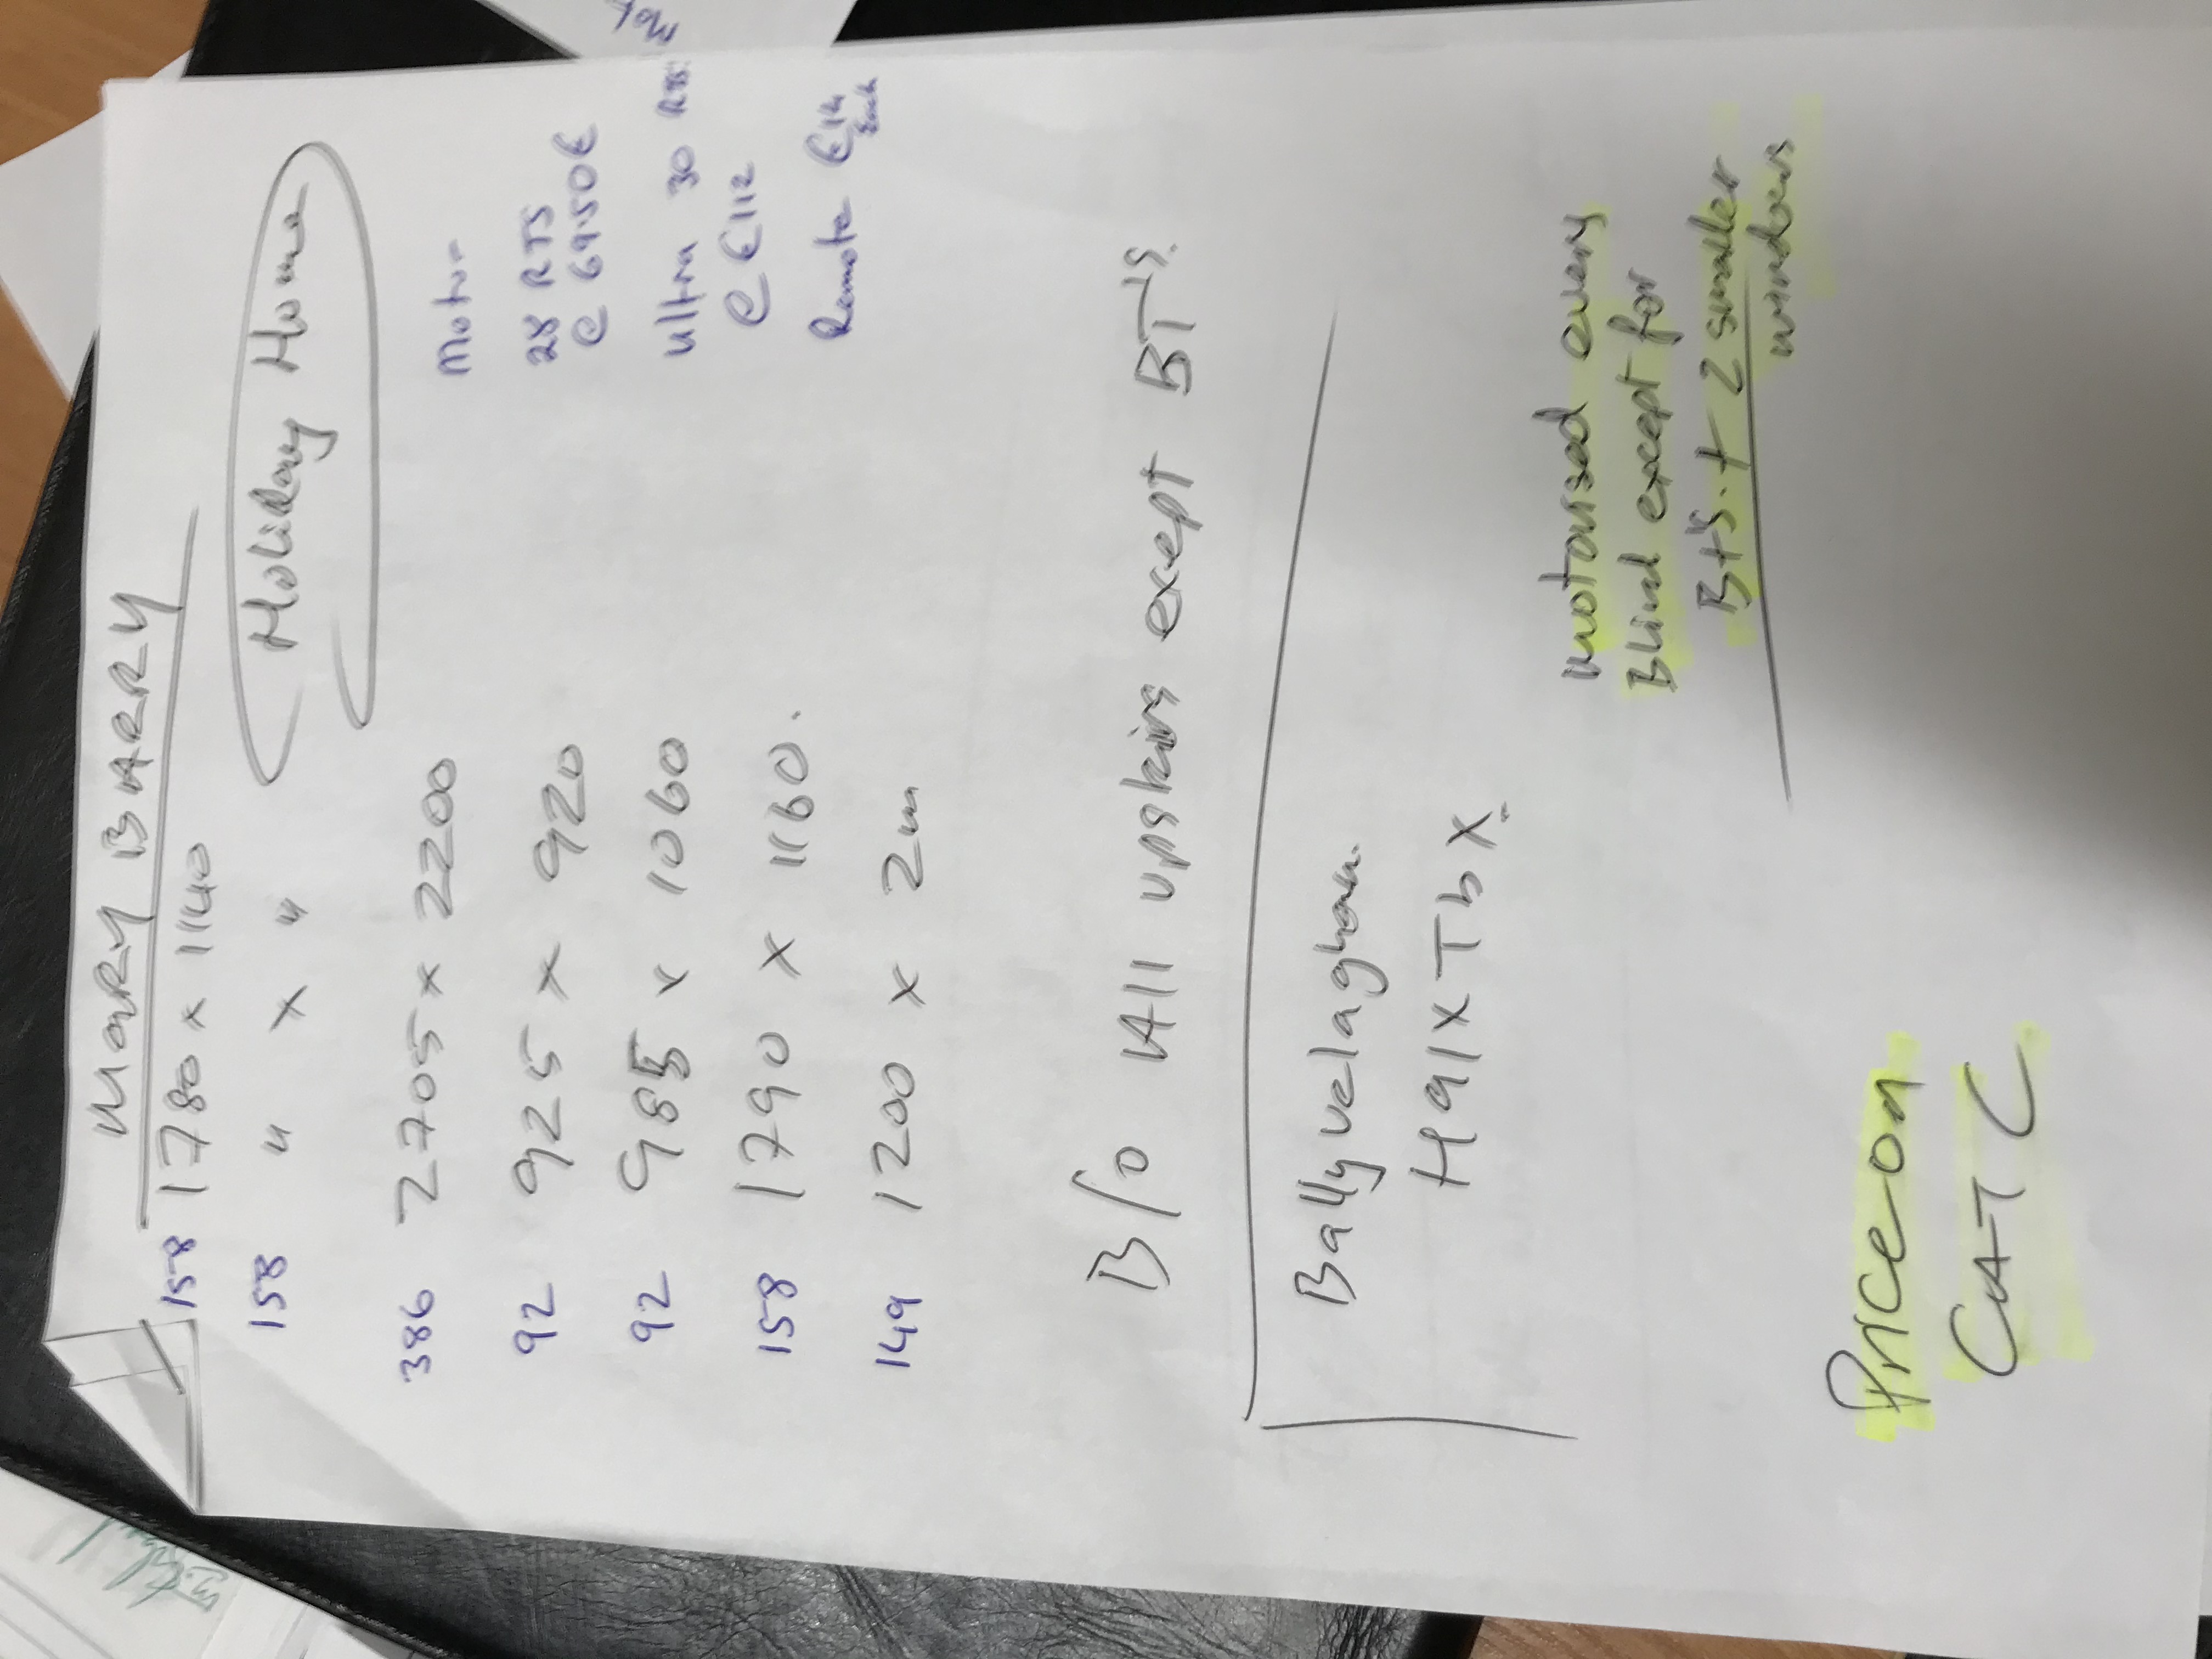 MARY BARRY
158 1780 x 1140
Holiday Home
158 " x "
386 2705 x 2200
92 925 x 920
92 985 x 1060
158 1790 x 1160.
149 1200 x 2m
Motor
28 RTS
@ 69.50€
Ultra 30 RTS
@ €112
Remote €14
Each
B/O All upskins except BT'S.
Ballyvelaghan
H91XTbX
motorised every
Blind except for
Bt's. + 2 smaller
windows
Price on
CAT C